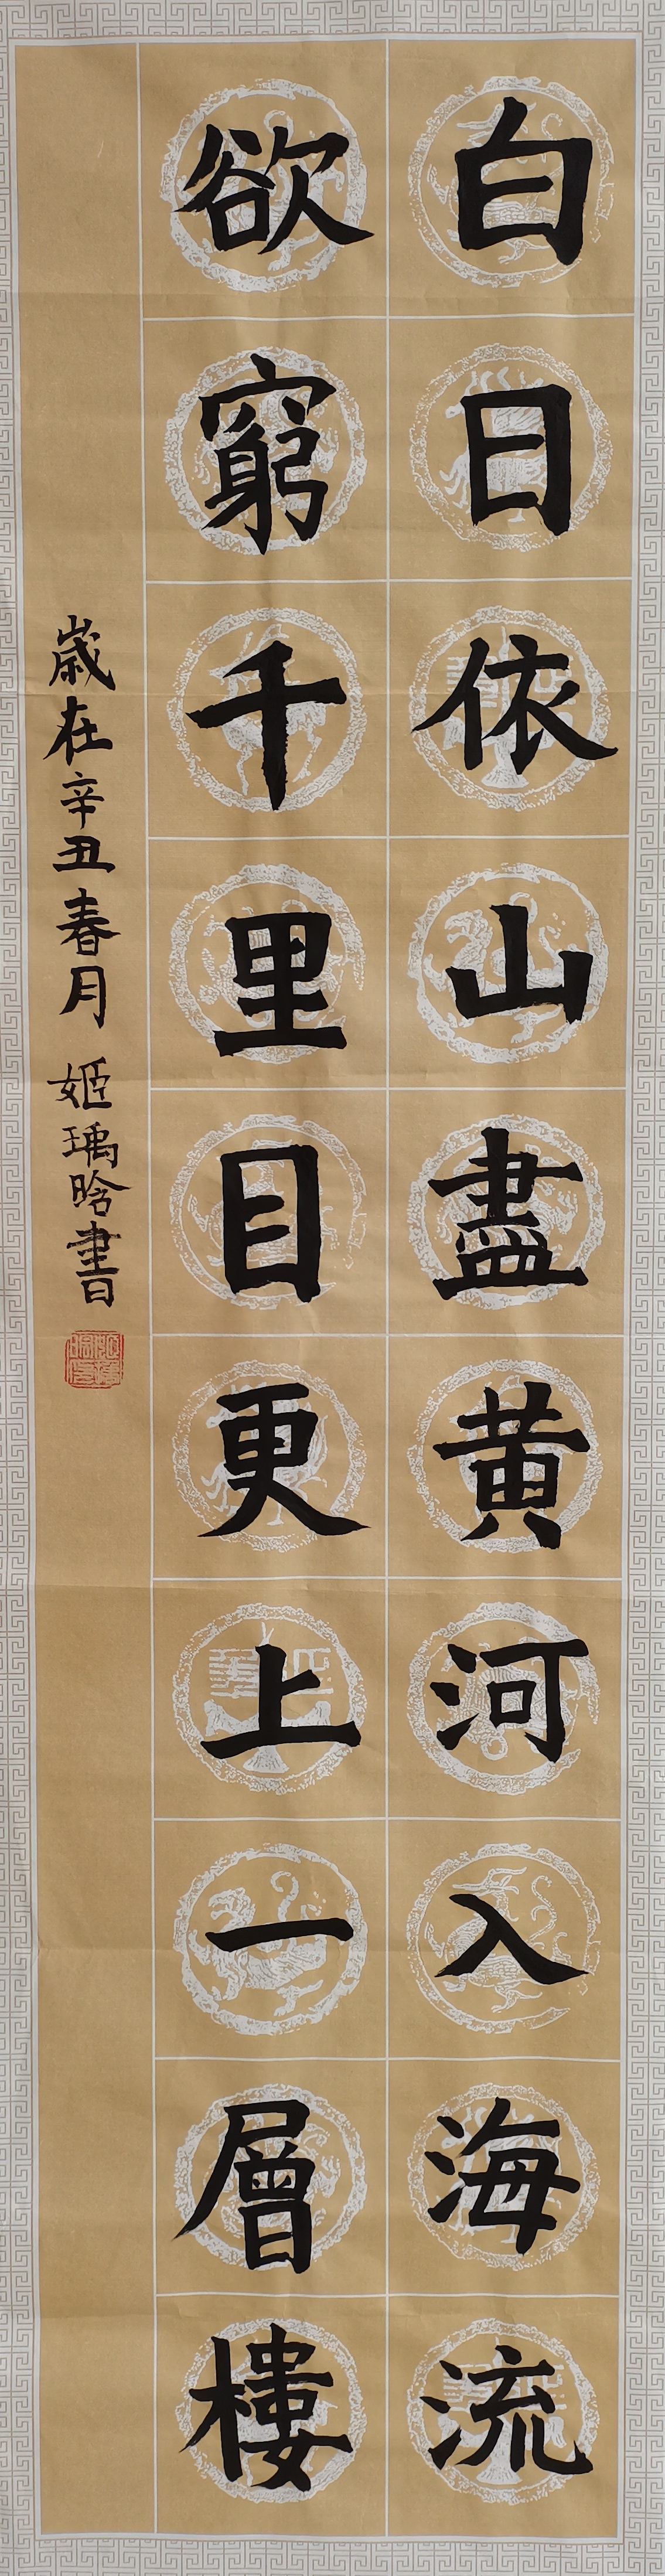 白日依山盡黄河入海流
欲窮千里目更上一層樓
歲在辛丑春月 姬瑀晗書